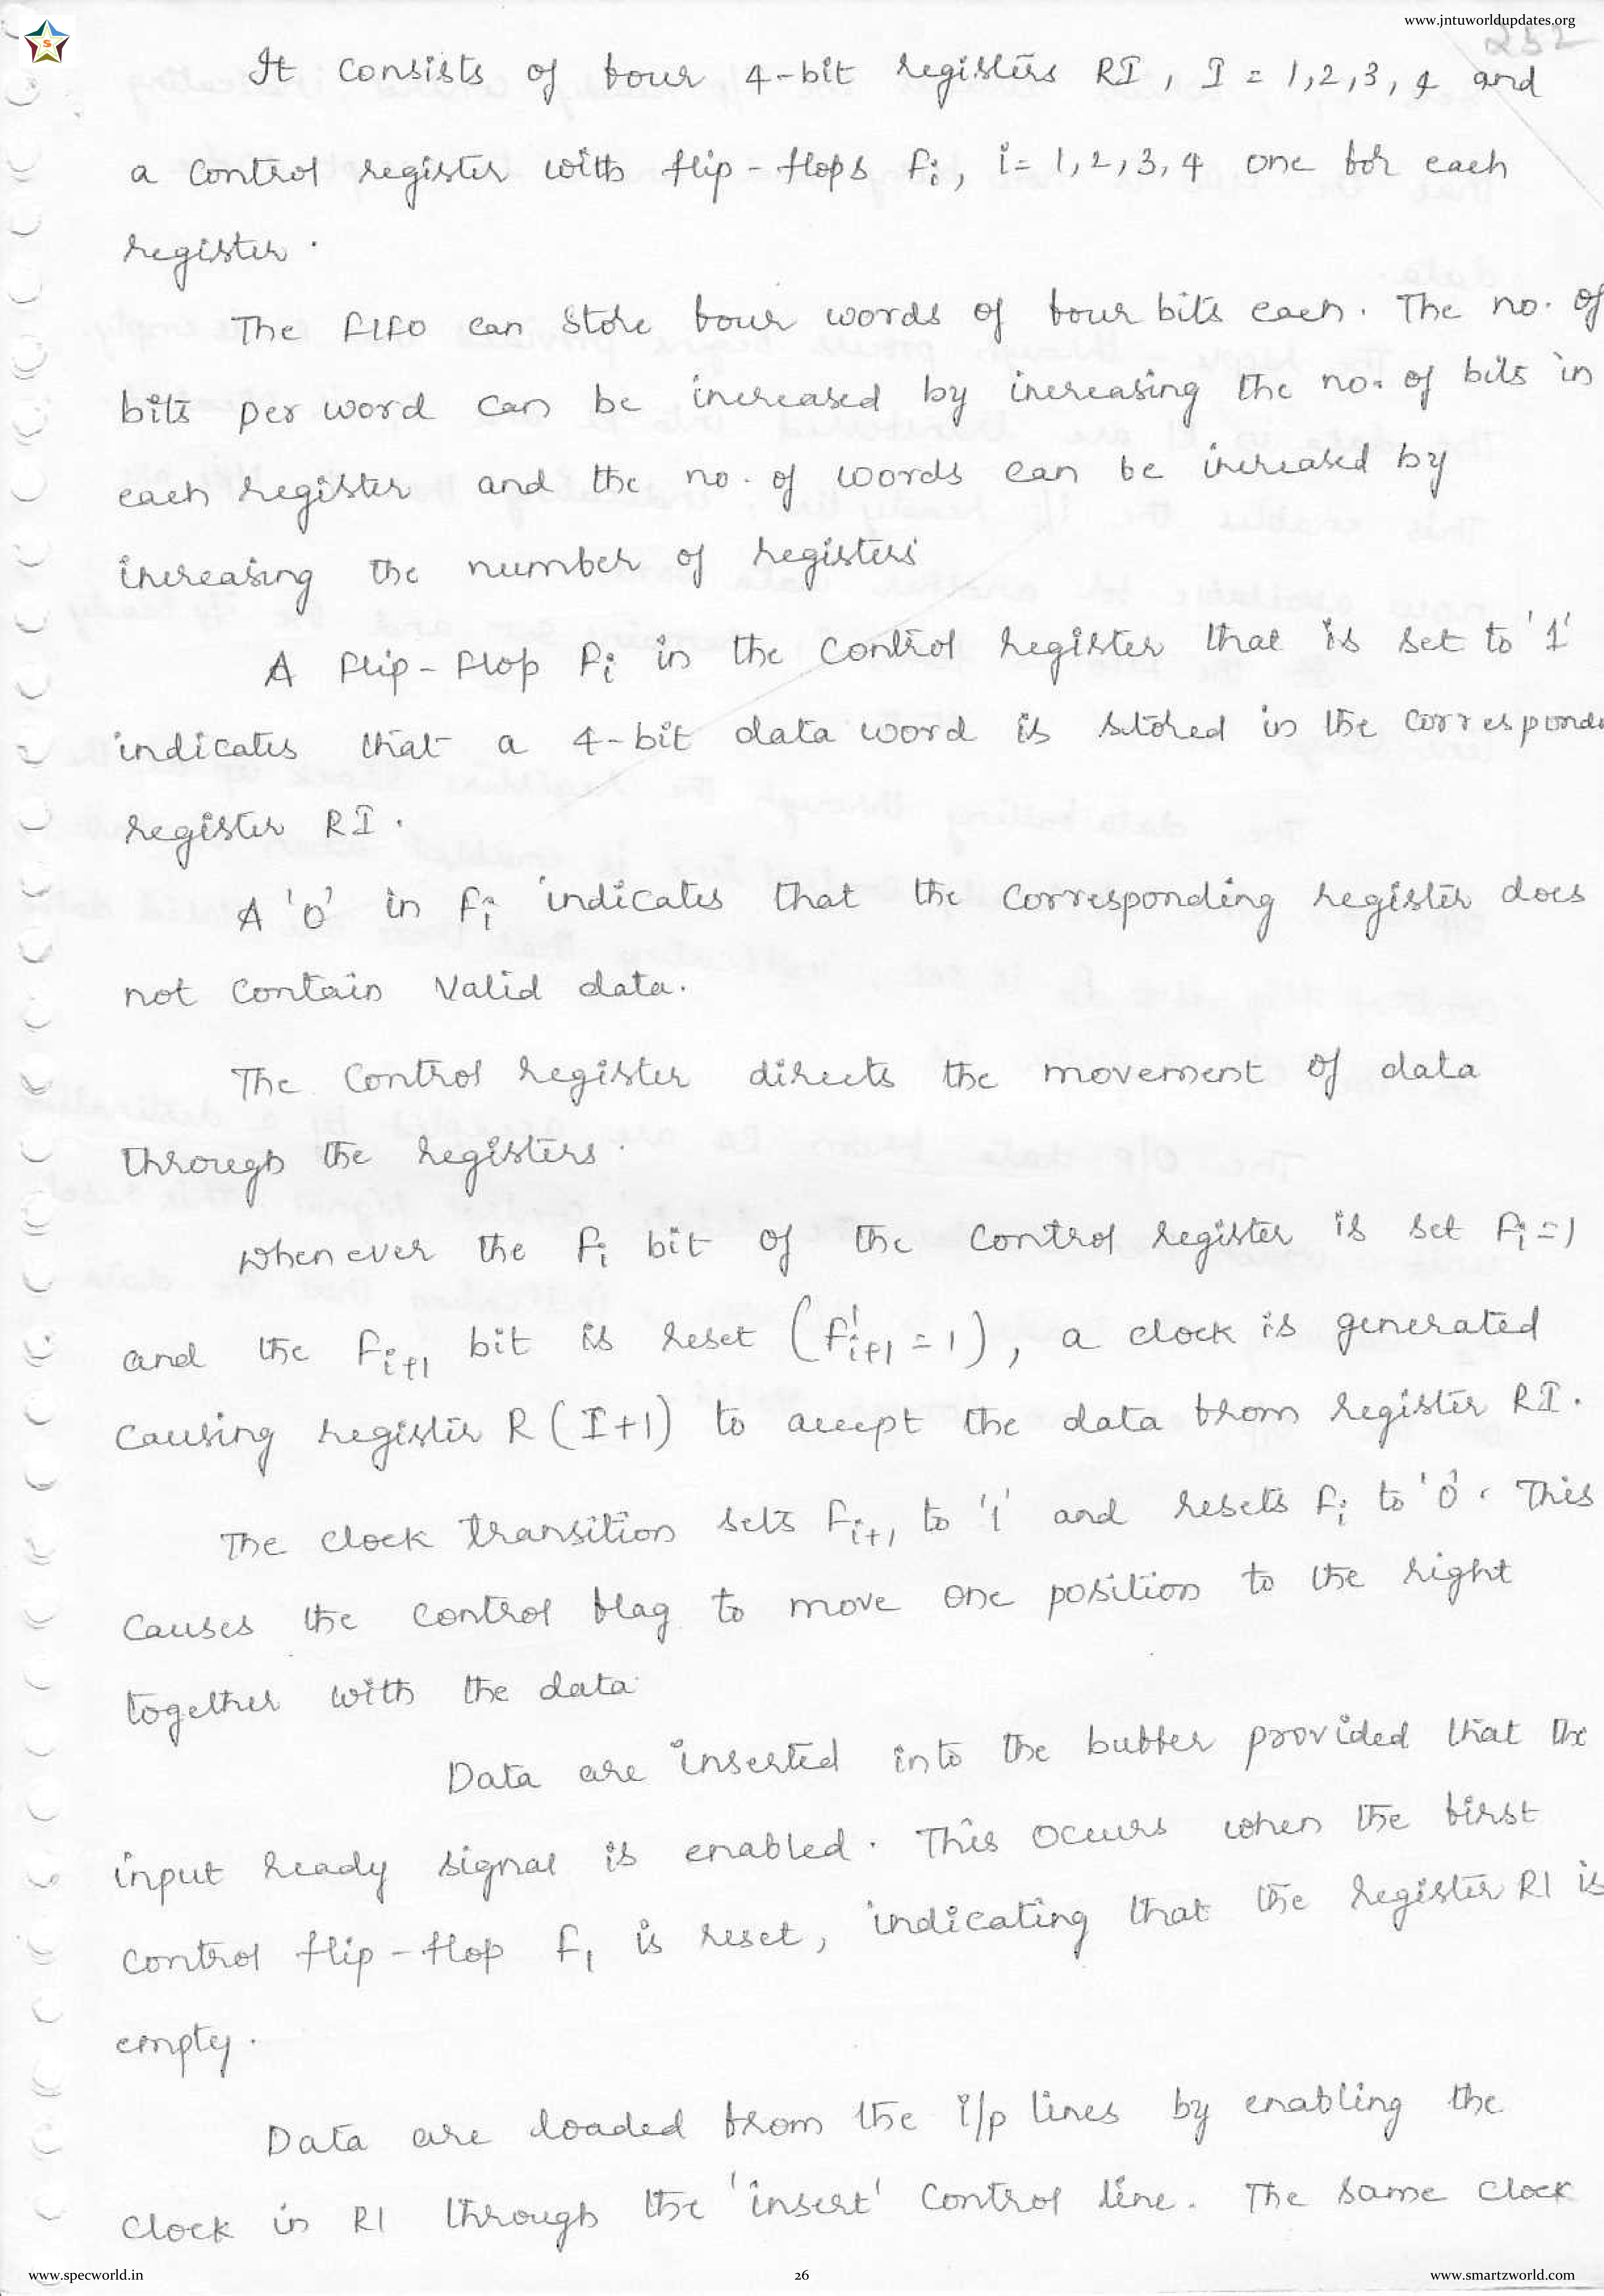 www.jntuworldupdates.org
252
It consists of four 4-bit registers RI, I = 1,2,3,4 and
a control register with flip-flops Fi, i=1,2,3,4 one for each
register.
The FIFO can store four words of four bits each. The no. of
bits per word can be increased by increasing the no. of bits in
each register and the no. of words can be increased by
increasing the number of registers
A flip-flop Fi in the control register that is set to '1'
indicates that a 4-bit data word is stored in the correspondi
register RI.
A '0' in Fi indicates that the corresponding register does
not contain valid data.
The control register directs the movement of data
through the registers.
Whenever the Fi bit of the control register is set Fi=1
and the Fi+1 bit is reset (F'i+1=1), a clock is generated
causing register R(I+1) to accept the data from register RI.
The clock transition sets Fi+1 to '1' and resets Fi to '0'. This
causes the control flag to move one position to the right
together with the data.
Data are inserted into the buffer provided that the
input ready signal is enabled. This occurs when the first
control flip-flop F1 is reset, indicating that the register R1 is
empty.
Data are loaded from the i/p lines by enabling the
clock in R1 through the 'insert' control line. The same clock
www.specworld.in
26
www.smartzworld.com